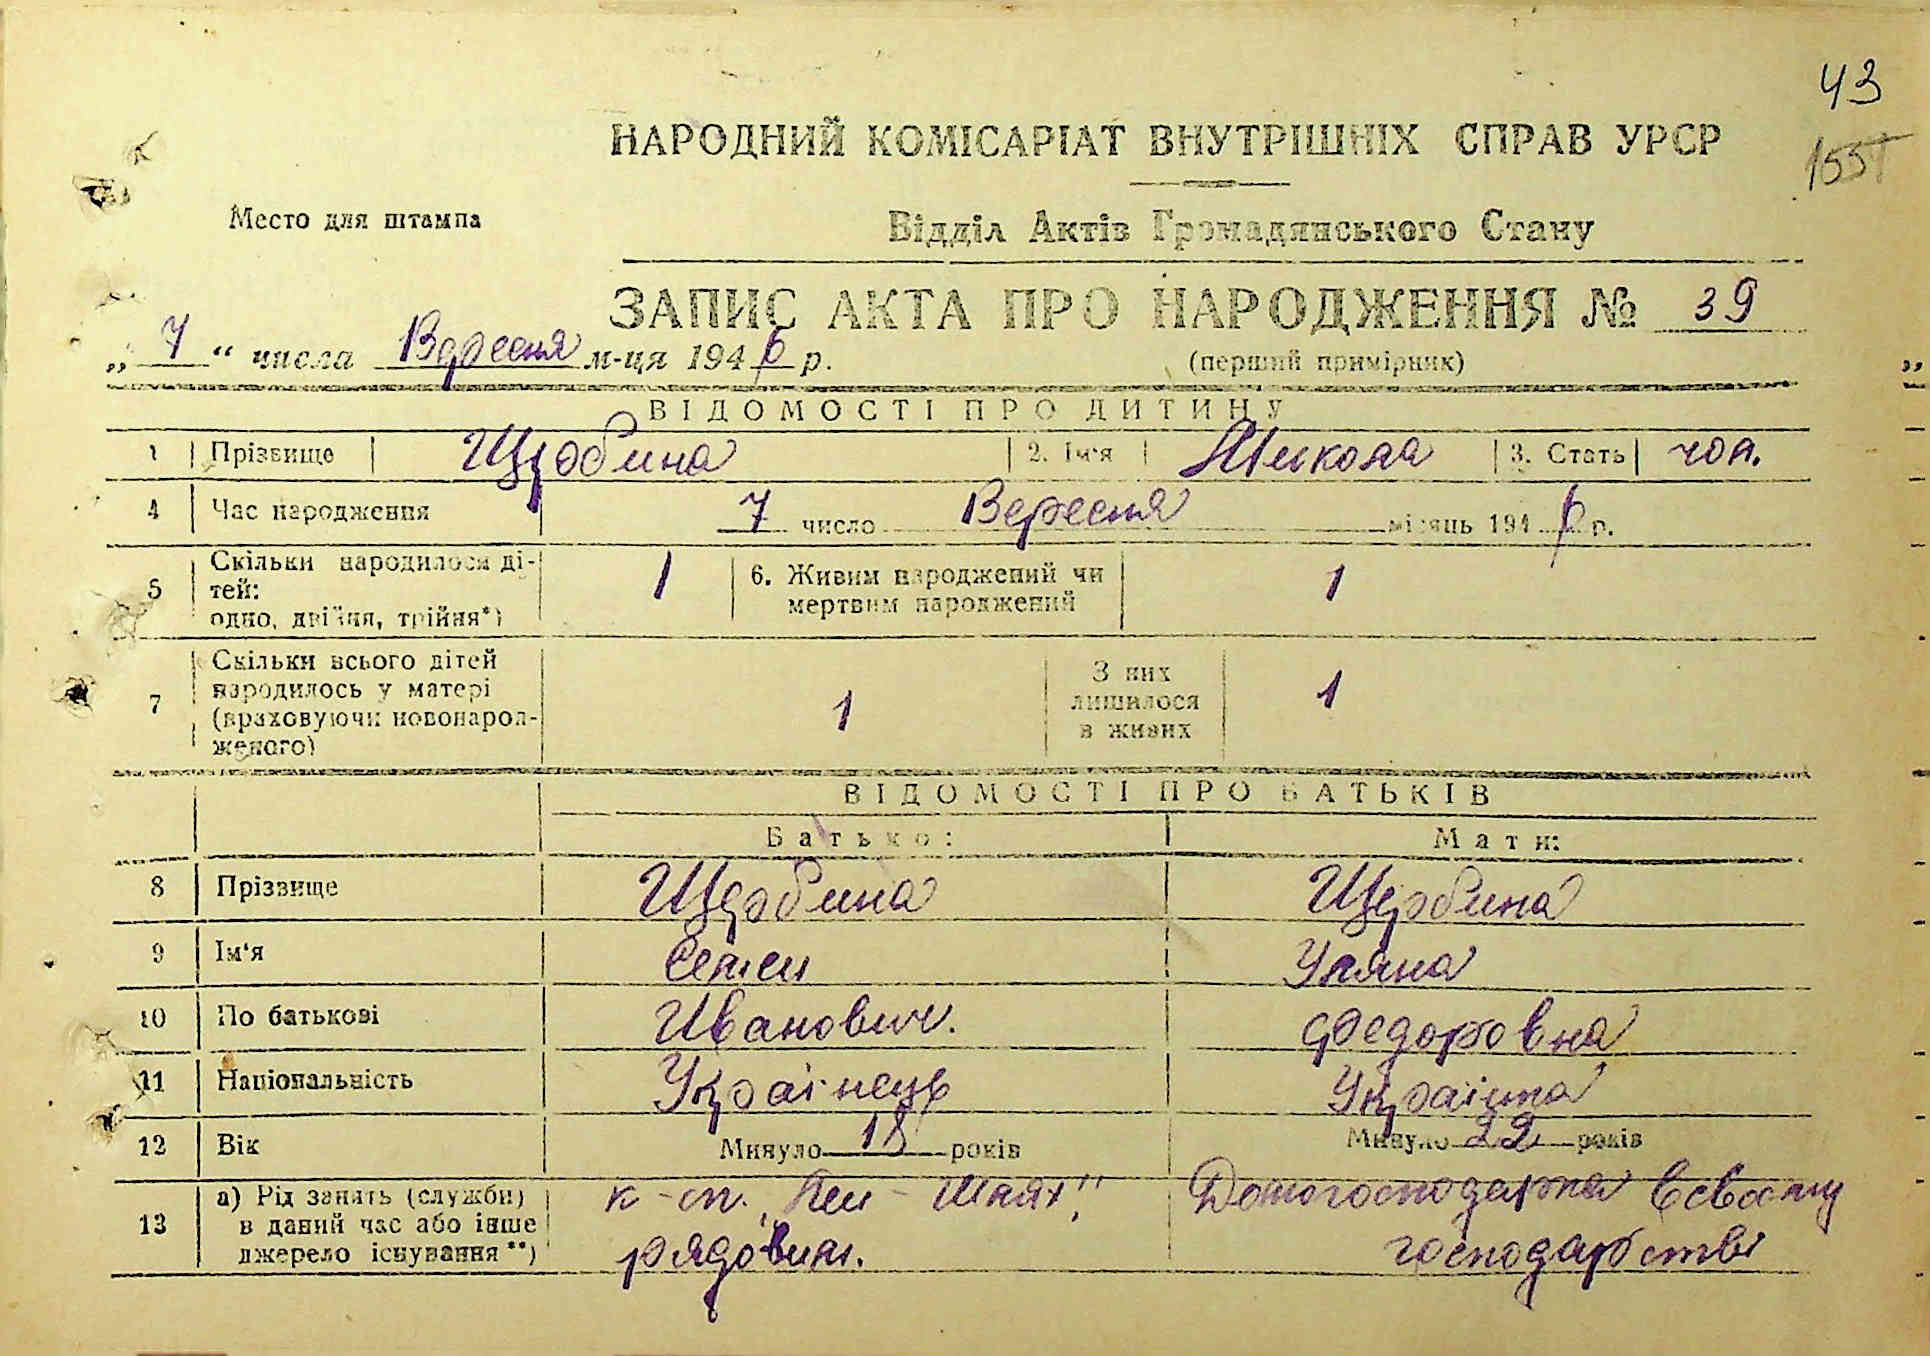 43
155
НАРОДНИЙ КОМІСАРІАТ ВНУТРІШНІХ СПРАВ УРСР
Место для штампа
Відділ Актів Громадянського Стану
ЗАПИС АКТА ПРО НАРОДЖЕННЯ № 39
„ 7 “ числа Вересня м-ця 1946 р.
(перший примірник)
ВІДОМОСТІ ПРО ДИТИНУ
1 Прізвище Щербина 2. Ім'я Микола 3. Стать чол.
4 Час народження 7 число Вересня місяць 1946 р.
5 Скільки народилося ді-
тей:
одно, двійня, трійня*) 1
6. Живим народжений чи
мертвим народжений 1
7 Скільки всього дітей
народилось у матері
(враховуючи новонарод-
женого) 1
З них
лишилося
в живих 1
ВІДОМОСТІ ПРО БАТЬКІВ
Батько: Мати:
8 Прізвище Щербина Щербина
9 Ім'я Семен Уляна
10 По батькові Иванович. Федоровна
11 Національність Українець Українка
12 Вік Минуло 18 років Минуло 22 років
13 а) Рід занять (служби)
в даний час або інше
джерело існування**)
к-сп. Шлях"
рядовим.
Домогосподарка в своєму
господарстві